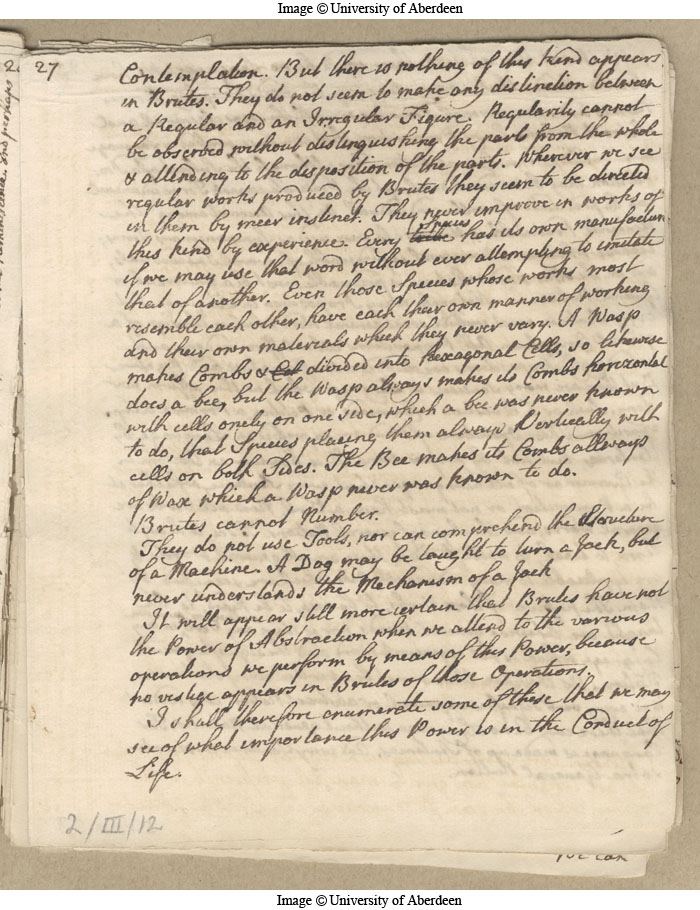 Image © University of Aberdeen
27
Contemplation. But there is nothing of this kind appears
in Brutes. They do not seem to make any distinction between
a Regular and an Irregular Figure. Regularity cannot
be observed without distinguishing the parts from the whole
& attending to the disposition of the parts. Wherever we see
regular works produced by Brutes they seem to be directed
in them by meer instinct. They never improve in works of
this kind by experience. Every Species has its own manufacture
if we may use that word without ever attempting to imitate
that of another. Even those Species whose works most
resemble each other, have each their own manner of working
and their own materials which they never vary. A Wasp
makes Combs & divided into hexagonal Cells, so likewise
does a bee, but the Wasp always makes its Combs horizontal
with cells onely on one side, which a bee was never known
to do, that Species placing them always Vertically with
cells on both Sides. The Bee makes its Combs allways
of Wax which a Wasp never was known to do.
Brutes cannot Number.
They do not use Tools, nor can comprehend the Structure
of a Machine. A Dog may be taught to turn a Jack, but
never understands the Mechanism of a Jack
It will appear still more certain that Brutes have not
the Power of Abstraction when we attend to the various
operations we perform by means of this Power, because
no vestige appears in Brutes of those Operations.
I shall therefore enumerate some of these that we may
see of what importance this Power is in the Conduct of
Life.
2/III/12
Image © University of Aberdeen